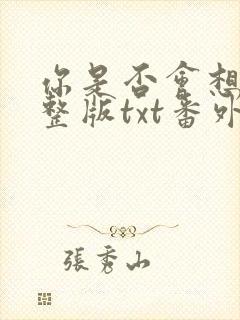 你是否會想
整版txt番外
張秀山